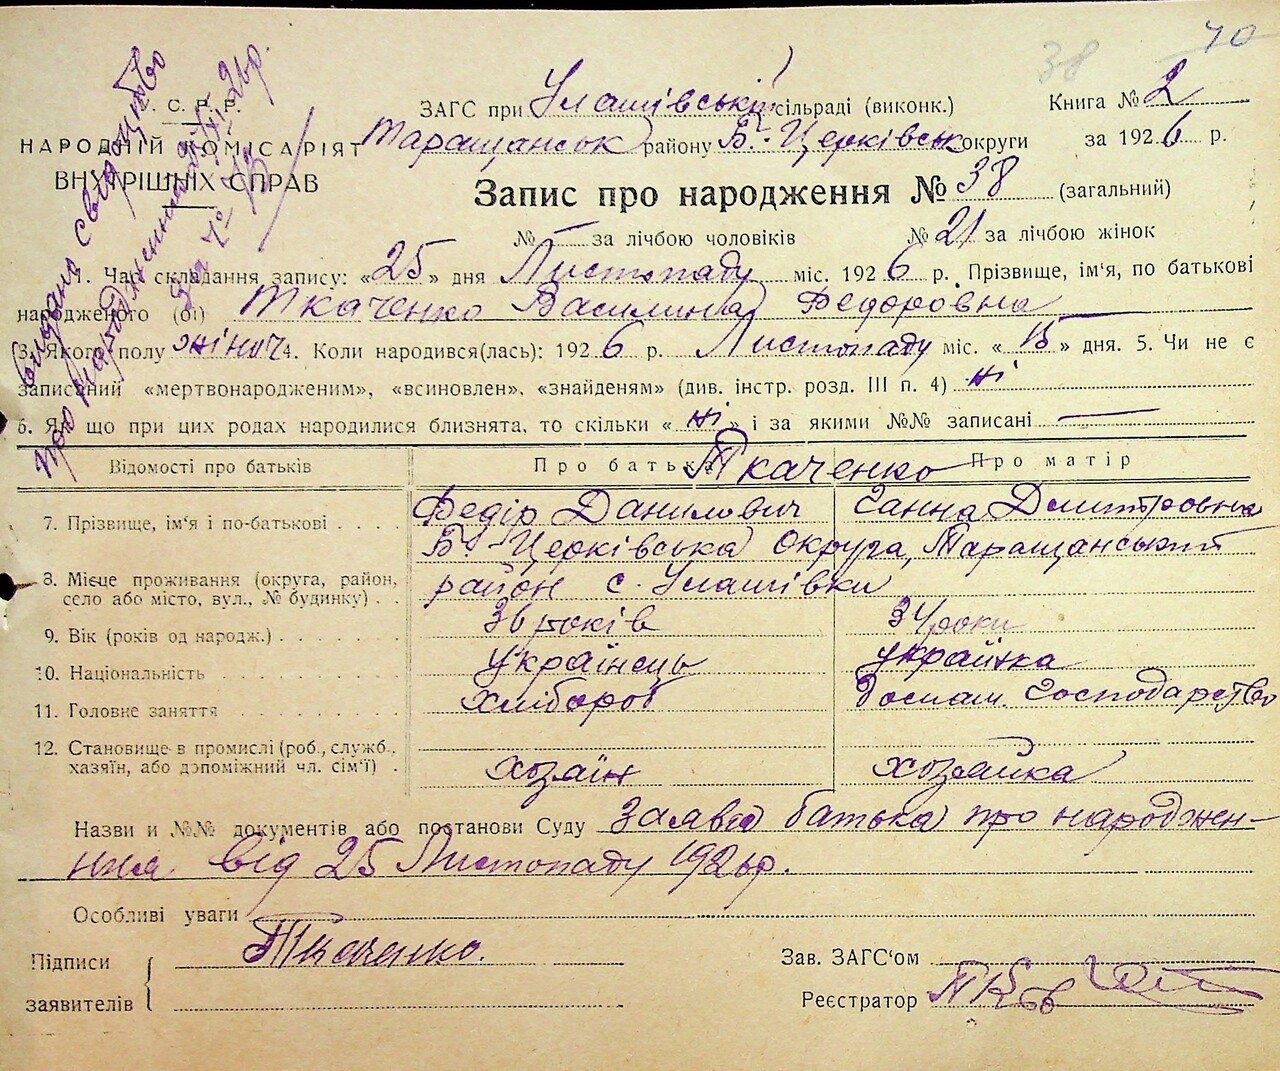 38 40
У. С. Р. Р.
НАРОДНІЙ КОМІСАРІЯТ
ВНУТРІШНІХ СПРАВ
Видано свідоцтво
про народження
ЗАГС при Улашівській сільраді (виконк.) Книга № 2
Таращанськ району Б.-Церківськ округи за 1926 р.
Запис про народження № 38 (загальний)
№ — за лічбою чоловіків № 21 за лічбою жінок
1. Час складання запису: «25» дня Листопаду міс. 1926 р. Прізвище, ім'я, по батькові
народженого (ої) Ткаченко Василина Федоровна
3. Якого полу жіноч 4. Коли народився(лась): 1926 р. Листопаду міс. «15» дня. 5. Чи не є
записаний «мертвонародженим», «всиновлен», «знайденям» (див. інстр. розд. III п. 4) ні
6. Як що при цих родах народилися близнята, то скільки «ні» і за якими №№ записані —
Відомості про батьків Про батька Ткаченко Про матір
7. Прізвище, ім'я і по-батькові . . . . Федір Данилович Ганна Дмитровна
Б.-Церківська Округа, Таращанський
8. Місце проживання (округа, район, село або місто, вул., № будинку) . . район с. Улашівки
9. Вік (років од народж.) . . . . . . . 36 років 34 роки
10. Національність . . . . . . . . . українець українка
11. Головне заняття . . . . . . . . . Хлібороб Домаш. Господарство
12. Становище в промислі (роб., служб., хазяїн, або допоміжний чл. сім'ї) . хозяїн хозяйка
Назви и №№ документів або постанови Суду Заява батька про народжен-
ння від 25 Листопаду 1926 р.
Особливі уваги
Підписи заявителів Ткаченко.
Зав. ЗАГС'ом
Реєстратор